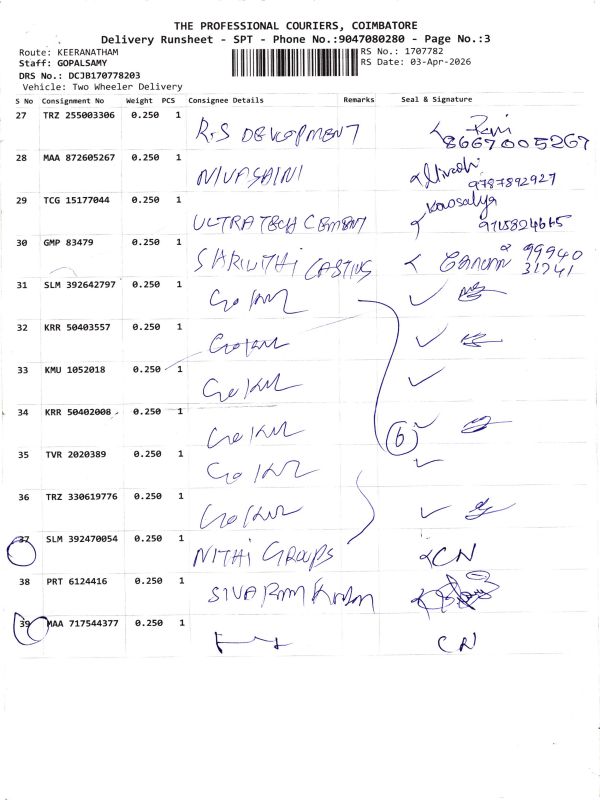 THE PROFESSIONAL COURIERS, COIMBATORE
Delivery Runsheet - SPT - Phone No.:9047080280 - Page No.:3
Route: KEERANATHAM
RS No.: 1707782
Staff: GOPALSAMY
RS Date: 03-Apr-2026
DRS No.: DCJB170778203
Vehicle: Two Wheeler Delivery
S No Consignment No Weight PCS Consignee Details Remarks Seal & Signature
27 TRZ 255003306 0.250 1 R.S DEVELOPMENT
8667005267
28 MAA 872605267 0.250 1 NIVASAINI
9787892927
29 TCG 15177044 0.250 1 ULTRATECH CEMENT Kowsalya
30 GMP 83479 0.250 1 99940
31241
31 SLM 392642797 0.250 1 Gokul
32 KRR 50403557 0.250 1 Gokul
33 KMU 1052018 0.250 1 Gokul
34 KRR 50402008 0.250 1 Gokul
6
35 TVR 2020389 0.250 1 Gokul
36 TRZ 330619776 0.250 1 Gokul
37 SLM 392470054 0.250 1 NITHI GROUPS CN
38 PRT 6124416 0.250 1
39 MAA 717544377 0.250 1 CN